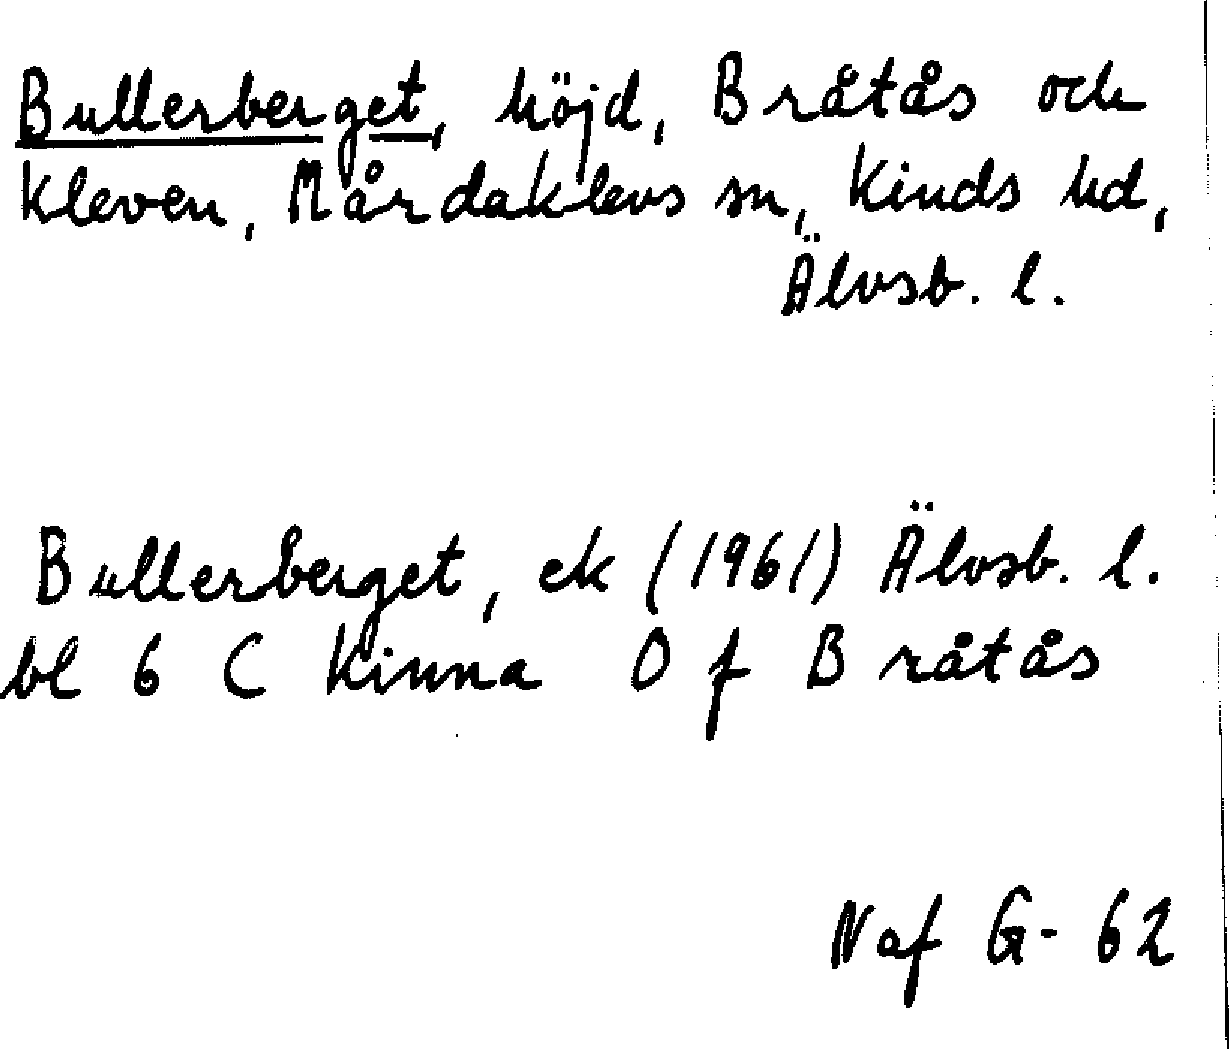 Bullerberget, höjd, Bråtås och
Kleven, Mårdaklevs sn, Kinds hd,
Älvsb. l.
Bullerberget, ek (1961) Älvsb. l.
bl 6 C Kinna O f Bråtås
N af G - 62